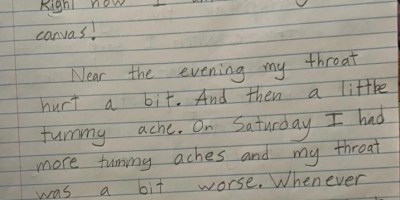 Right now I
canvas!
Near the evening my throat
hurt a bit. And then a little
tummy ache. On Saturday I had
more tummy aches and my throat
was a bit worse. Whenever